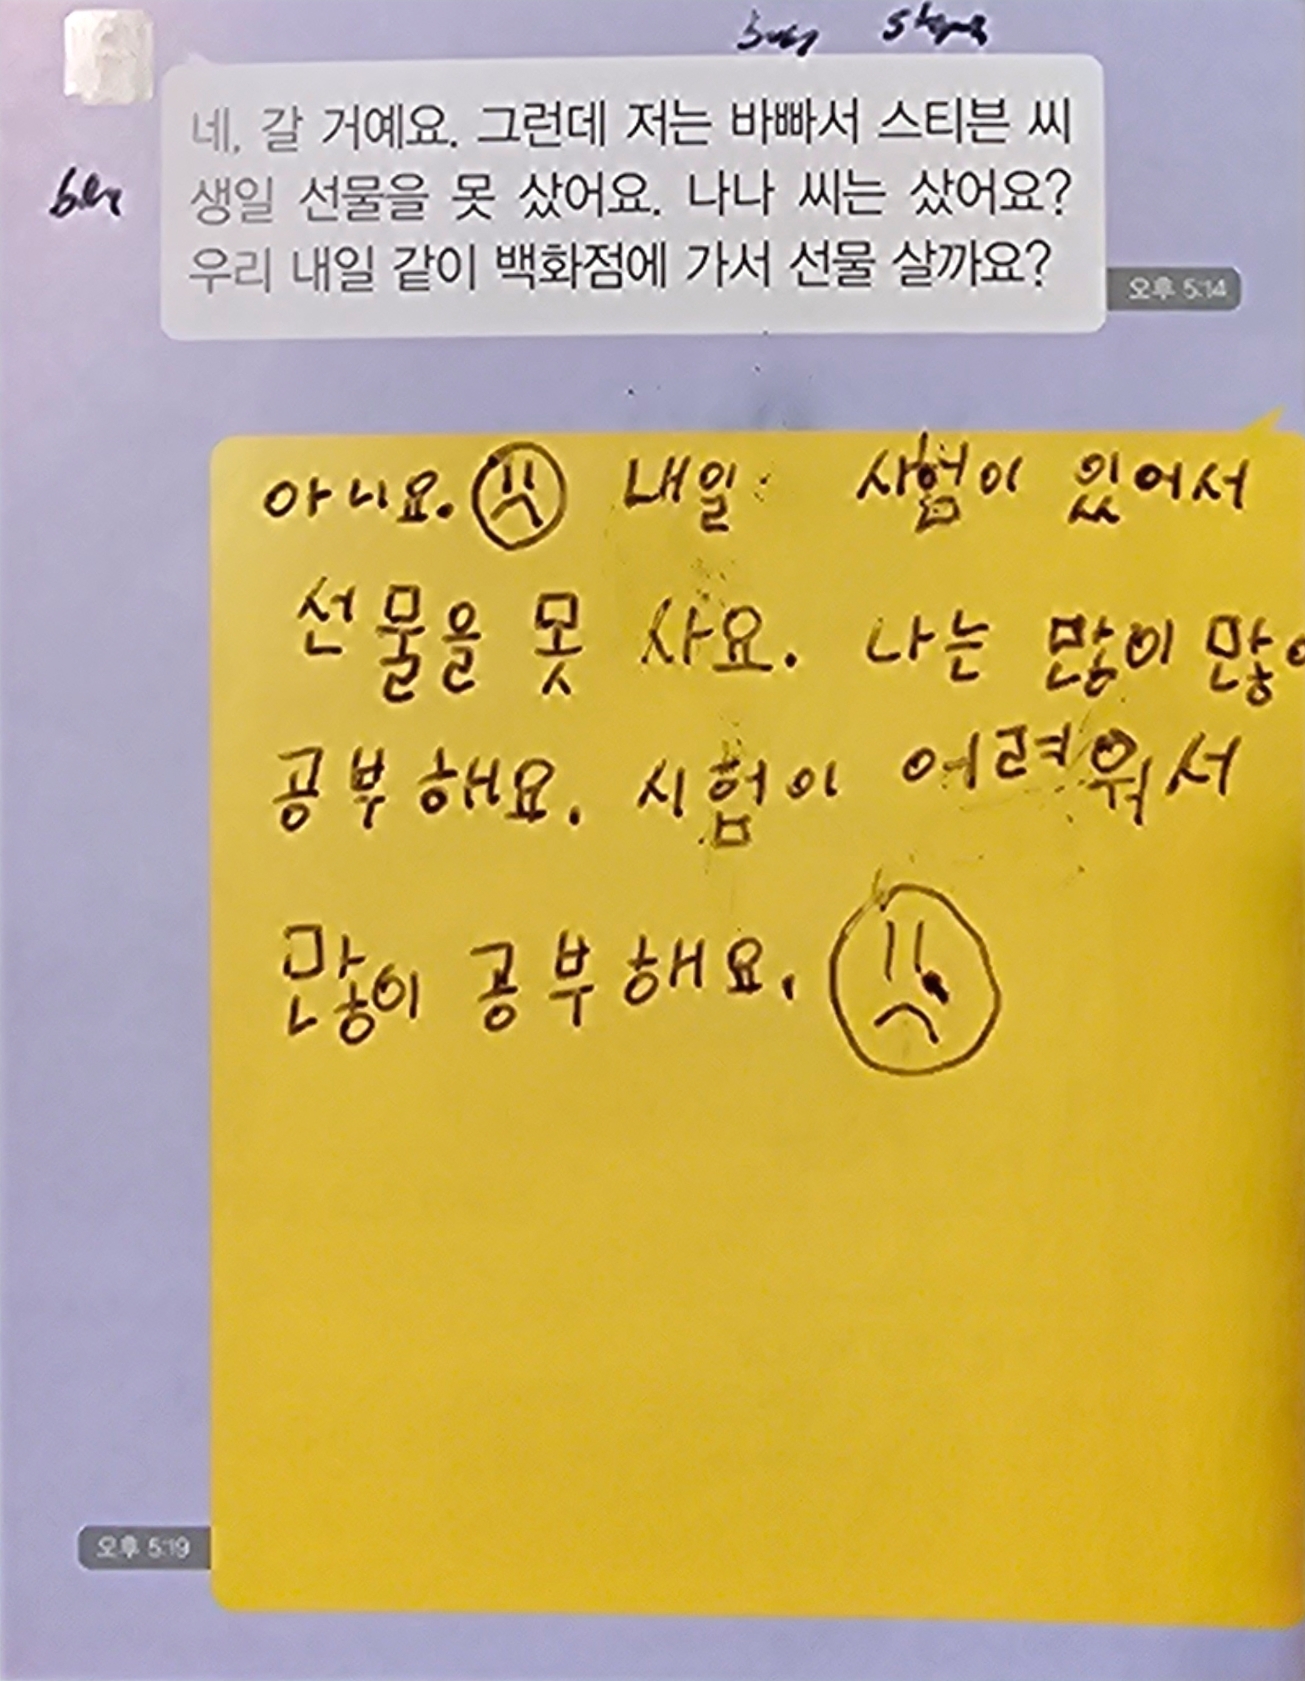 네, 갈 거예요. 그런데 저는 바빠서 스티븐 씨
생일 선물을 못 샀어요. 나나 씨는 샀어요?
우리 내일 같이 백화점에 가서 선물 살까요?
오후 5:14
아니요. 내일 시험이 있어서
선물을 못 사요. 나는 많이
공부해요. 시험이 어려워서
많이 공부해요.
오후 5:19